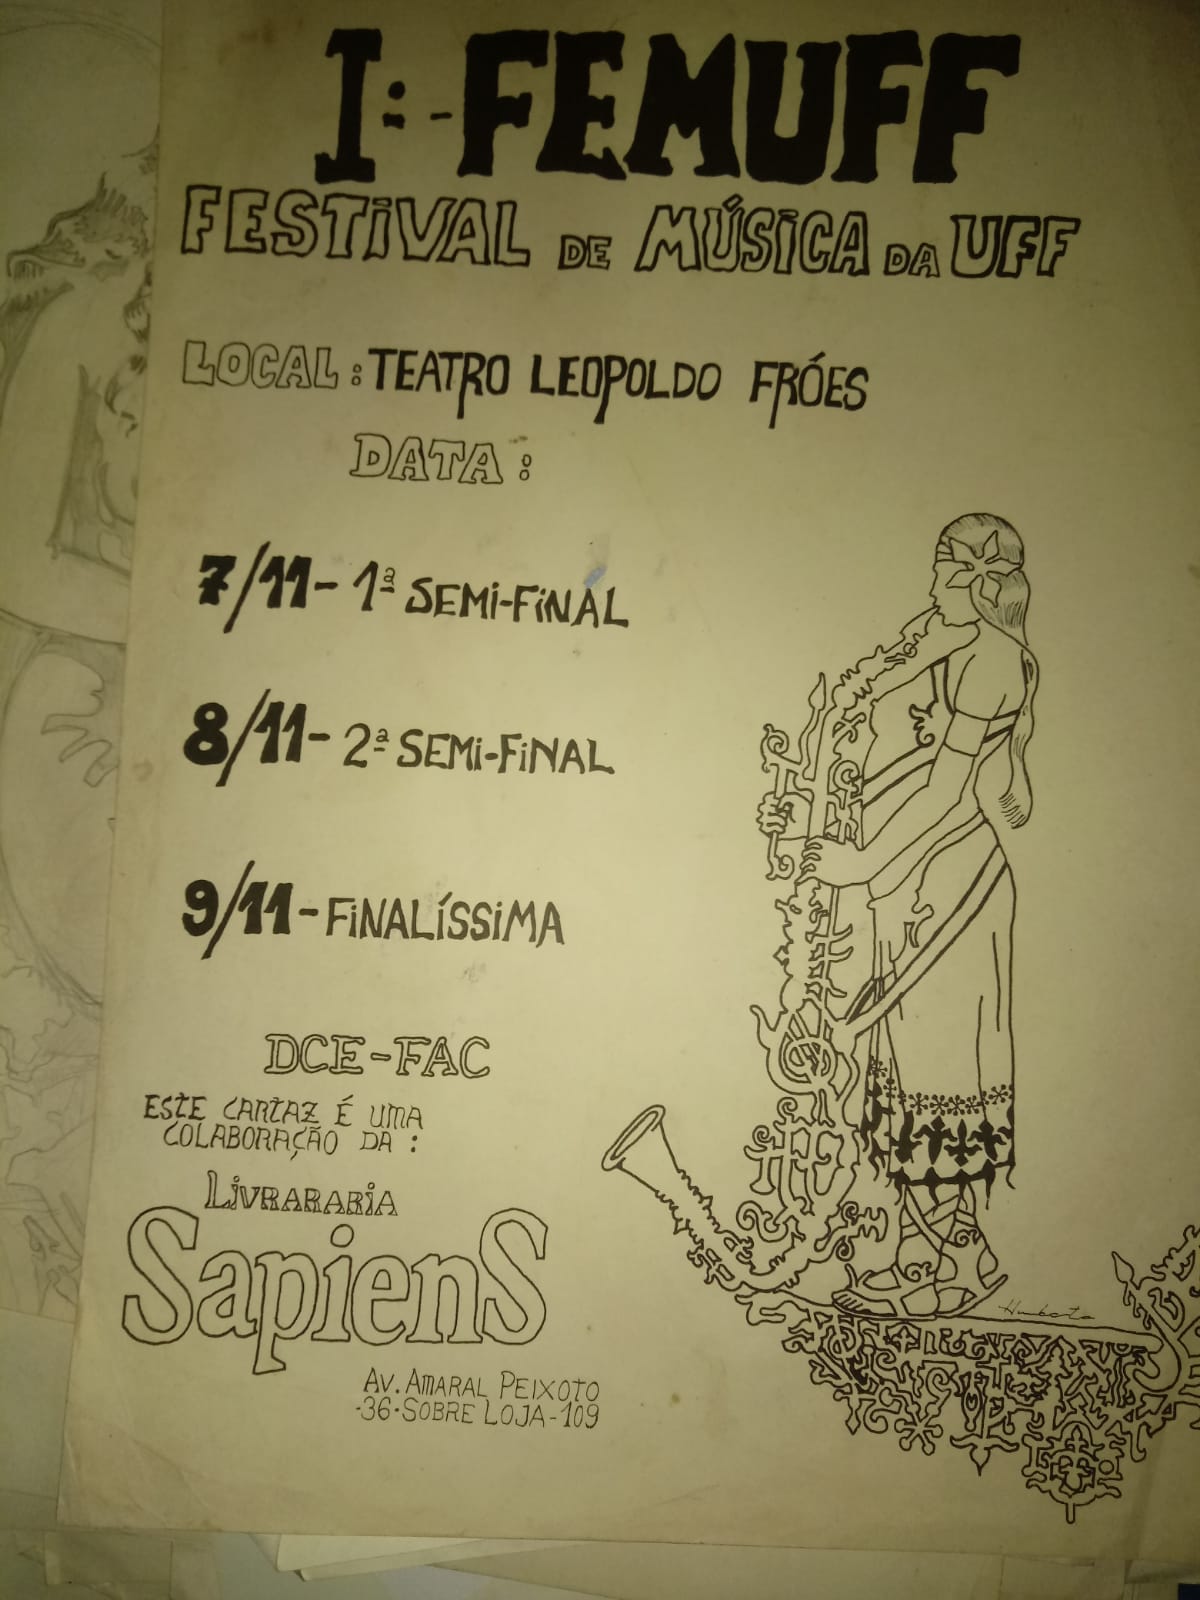 I:-FEMUFF
FESTiVAL DE MÚSiCA DA UFF
LOCAL: TEATRO LEOPOLDO FRÓES
DATA:
7/11- 1ª SEMi-FiNAL
8/11- 2ª SEMi-FiNAL
9/11- FiNALÍSSiMA
DCE-FAC
ESTE CARTAZ É UMA
COLABORAÇÃO DA:
LiVRARARiA
SapienS
AV. AMARAL PEIXOTO
-36-SOBRE LOJA-109
Humberto